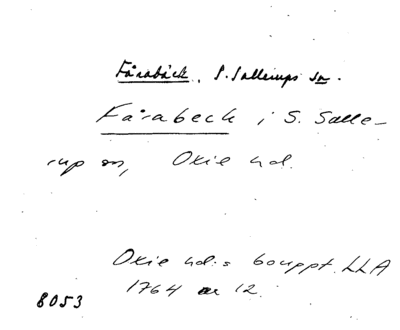 Fårabäck, S. Sallerups sn.
Fårabeck i S. Salle-
rup sn, Oxie hd.
Oxie hd:s bouppt. LLA
1764 nr 12.
8053